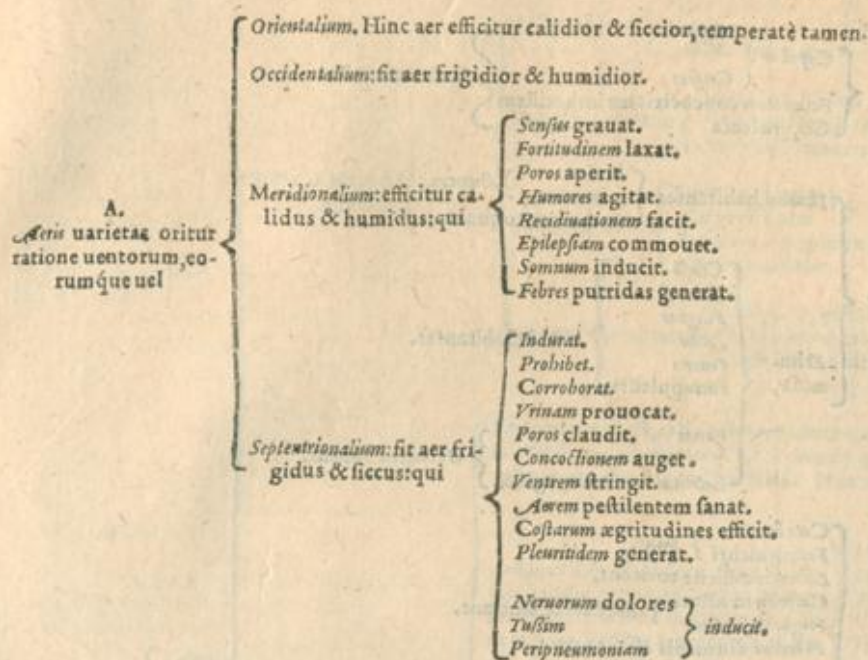 Orientalium. Hinc aer efficitur calidior & siccior, temperatè tamen.
Occidentalium: fit aer frigidior & humidior.
A.
Aeris uarietas oritur
ratione uentorum, eo-
rumq́ue uel
Meridionalium: efficitur ca-
lidus & humidus: qui
Sensus grauat.
Fortitudinem laxat.
Poros aperit.
Humores agitat.
Recidiuationem facit.
Epilepsiam commouet.
Somnum inducit.
Febres putridas generat.
Septentrionalium: fit aer fri-
gidus & siccus: qui
Indurat.
Prohibet.
Corroborat.
Vrinam prouocat.
Poros claudit.
Concoctionem auget.
Ventrem stringit.
Aerem pestilentem sanat.
Costarum ægritudines efficit.
Pleuritidem generat.
Neruorum dolores
Tussim
Peripneumoniam
inducit.